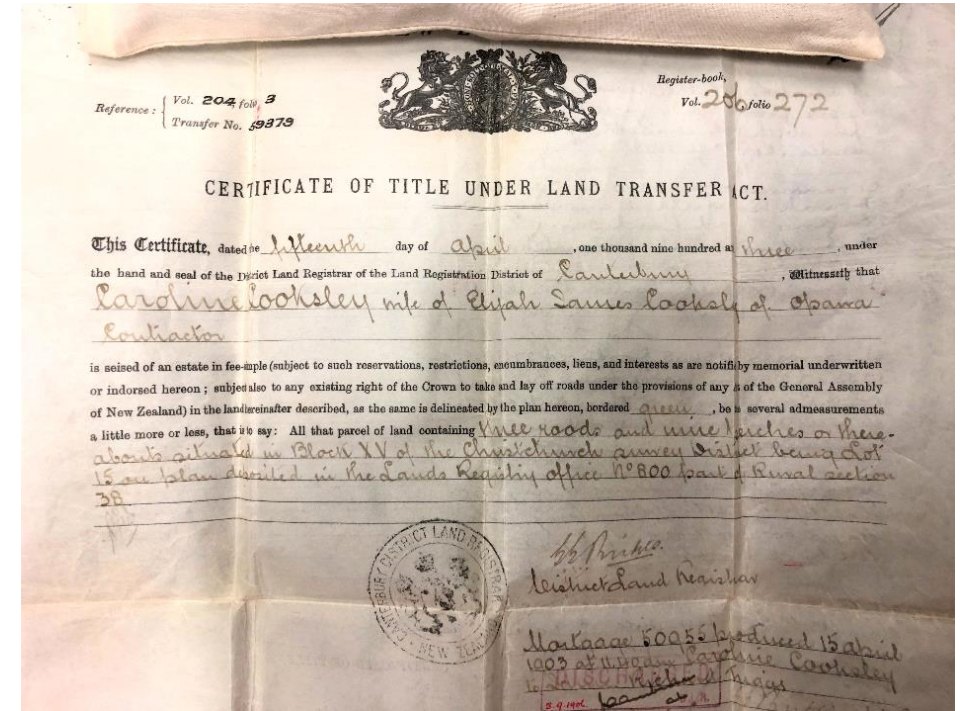 Reference :
Vol. 204, foli, 3
Transfer No. 59379
Register-book,
Vol. 206 folio 272
CERTIFICATE OF TITLE UNDER LAND TRANSFER ACT.
This Certificate, dated he fifteenth day of April , one thousand nine hundred a three , under
the hand and seal of the District Land Registrar of the Land Registration District of Canterbury , Witnesseth that
Caroline Cooksley wife of Elijah James Cooksl of Opawa
Contractor
is seised of an estate in fee-imple (subject to such reservations, restrictions, encumbrances, liens, and interests as are notifi by memorial underwritten
or indorsed hereon ; subject also to any existing right of the Crown to take and lay off roads under the provisions of any of the General Assembly
of New Zealand) in the land hereinafter described, as the same is delineated by the plan hereon, bordered green , be several admeasurements
a little more or less, that is to say: All that parcel of land containing three roods and nine perches or there-
abouts situated in Block XV of the Christchurch survey District being Lot
15 on plan deposited in the Lands Registry office No 800 part of Rural section
38
CANTERBURY DISTRICT LAND REGISTRAR
NEW ZEALAND
District Land Registrar
Mortgage 50055 produced 15 April
1903 at Caroline Cooksley
to